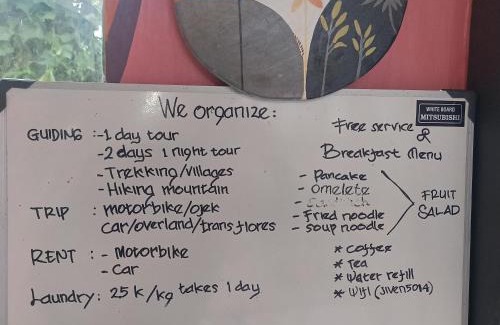 We organize:
GUIDING :-1 day tour
-2 days 1 night tour
-Trekking/villages
-Hiking mountain
TRIP : motorbike/ojek
car/overland/transflores
RENT :- Motorbike
- Car
Laundry: 25k/kg takes 1 day
WHITE BOARD
MITSUBISHI
Free service
&
Breakfast Menu
- Pancake
- Omelete
- Fried noodle
- Soup noodle
FRUIT
SALAD
* Coffee
* Tea
* Water refill
* Wifi (Jiven5014)